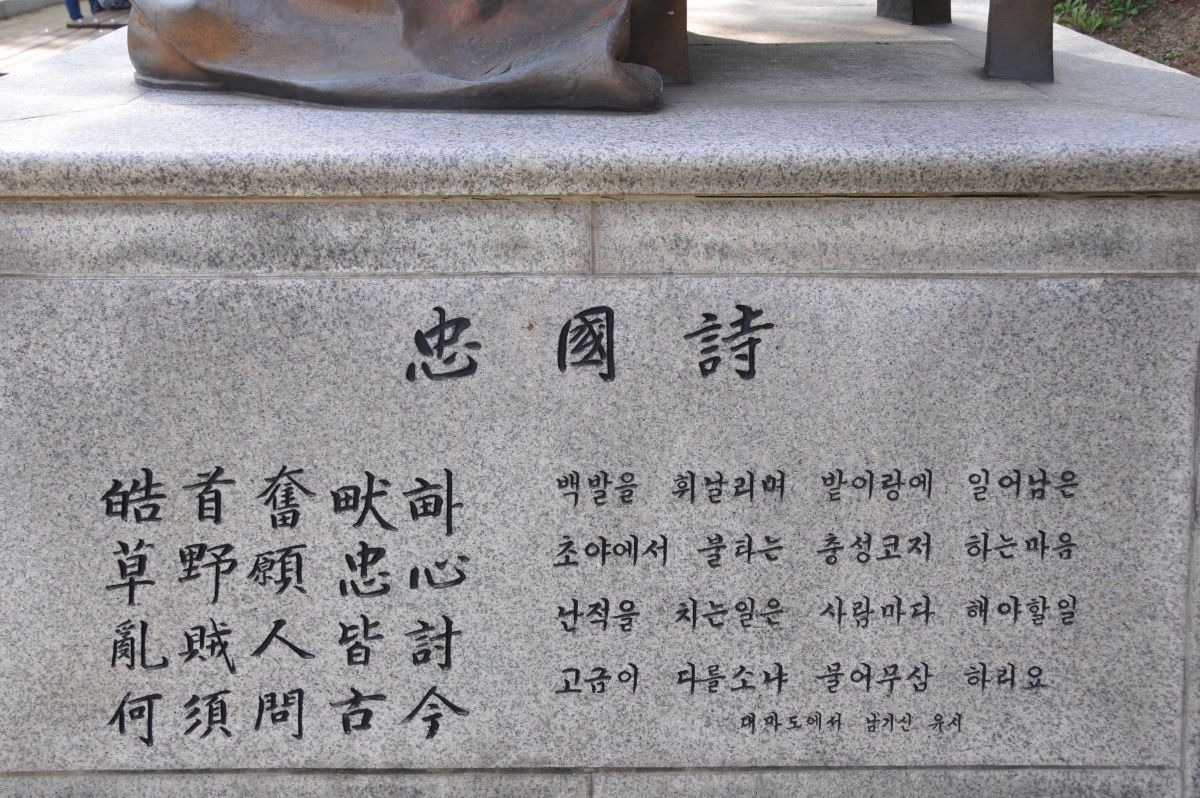 忠國詩
皓首奮畎畝
草野願忠心
亂賊人皆討
何須問古今
백발을 휘날리며 밭이랑에 일어남은
초야에서 불타는 충성코저 하는마음
난적을 치는일은 사람마다 해야할일
고금이 다를소냐 물어무삼 하리오
대마도에서 남기신 유시